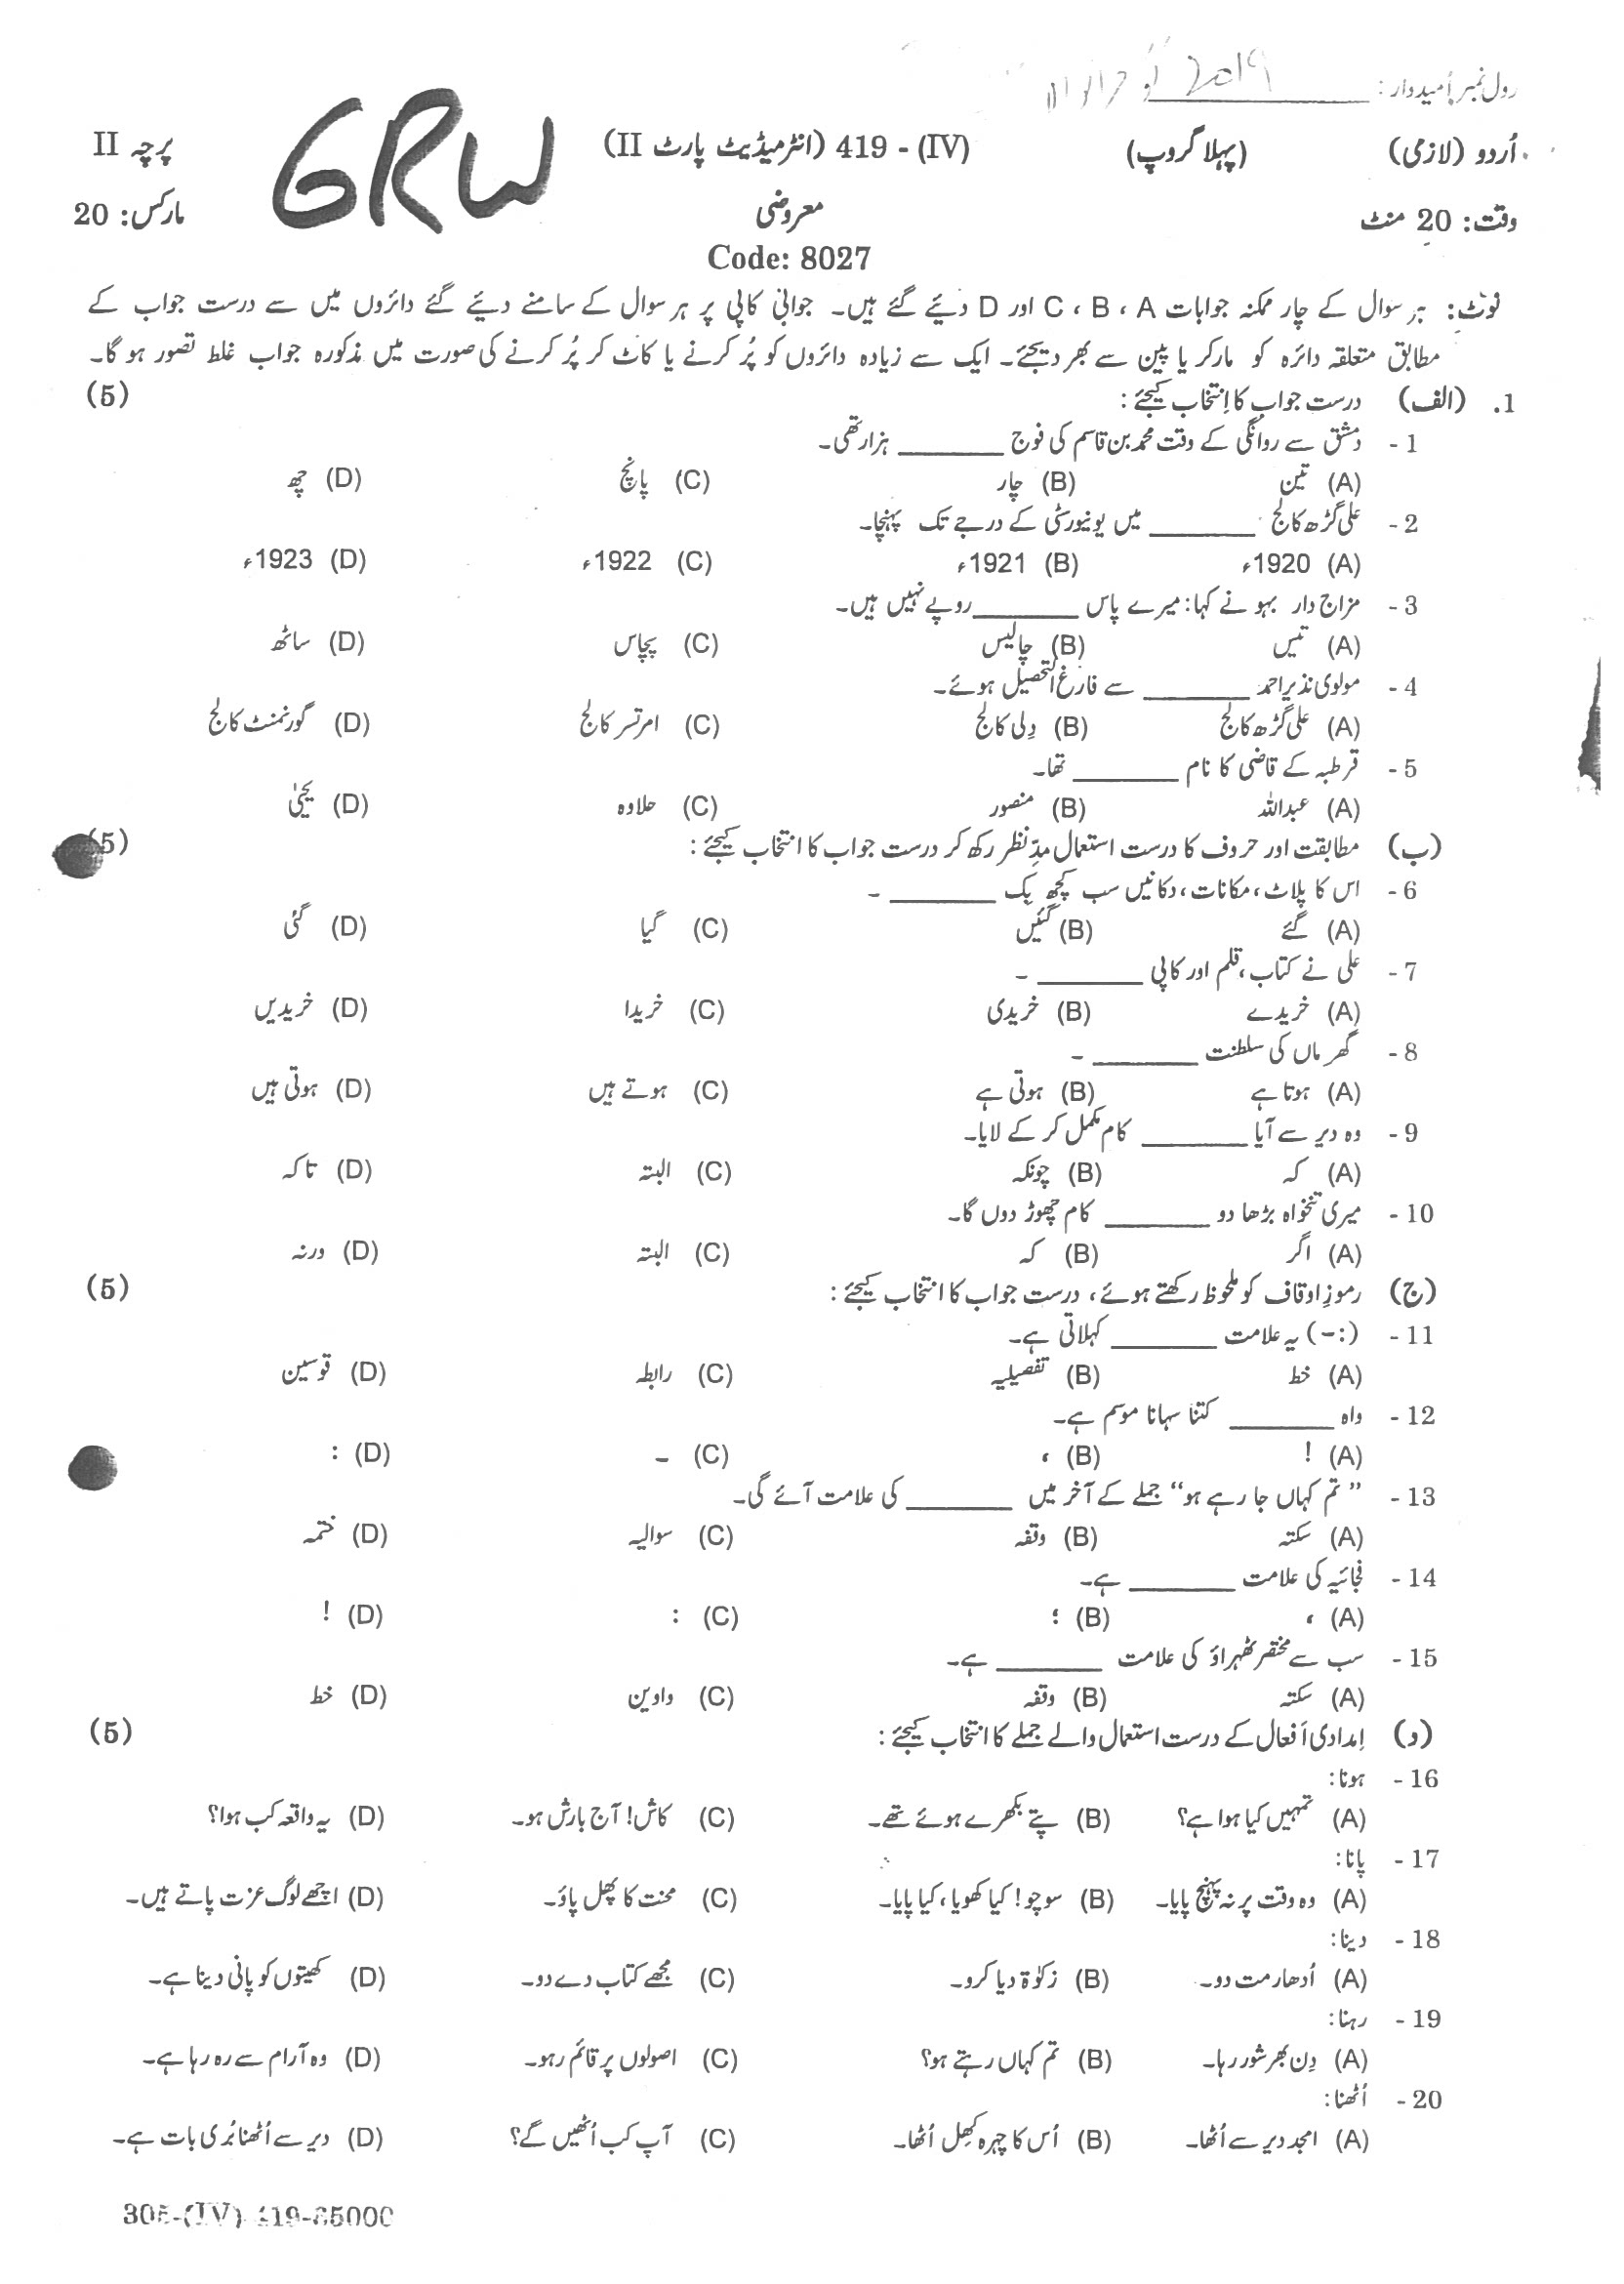 رول نمبر اُمیدوار: 2019
اُردو (لازمی) (پہلا گروپ) 419 - (IV) (انٹرمیڈیٹ پارٹ II) GRW پرچہ II
وقت: 20 منٹ معروضی مارکس: 20
Code: 8027
نوٹ: ہر سوال کے چار ممکنہ جوابات A ، B ، C اور D دیئے گئے ہیں۔ جوابی کاپی پر ہر سوال کے سامنے دیئے گئے دائروں میں سے درست جواب کے
مطابق متعلقہ دائرہ کو مارکر یا پین سے بھر دیجئے۔ ایک سے زیادہ دائروں کو پُر کرنے یا کاٹ کر پُر کرنے کی صورت میں مذکورہ جواب غلط تصور ہو گا۔
1. (الف) درست جواب کا اِنتخاب کیجئے: (5)
1 - دمشق سے روانگی کے وقت محمد بن قاسم کی فوج ________ ہزار تھی۔
(A) تین (B) چار (C) پانچ (D) چھ
2 - علی گڑھ کالج ________ میں یونیورسٹی کے درجے تک پہنچا۔
(A) 1920ء (B) 1921ء (C) 1922ء (D) 1923ء
3 - مزاج دار بہو نے کہا: میرے پاس ________ روپے نہیں ہیں۔
(A) تیس (B) چالیس (C) پچاس (D) ساٹھ
4 - مولوی نذیر احمد ________ سے فارغ التحصیل ہوئے۔
(A) علی گڑھ کالج (B) دِلی کالج (C) امرتسر کالج (D) گورنمنٹ کالج
5 - قرطبہ کے قاضی کا نام ________ تھا۔
(A) عبداللہ (B) منصور (C) حلاوہ (D) یحییٰ
(ب) مطابقت اور حروف کا درست استعمال مدِّنظر رکھ کر درست جواب کا انتخاب کیجئے: (5)
6 - اس کا پلاٹ، مکانات، دکانیں سب کچھ بِک ________ ۔
(A) گئے (B) گئیں (C) گیا (D) گئی
7 - علی نے کتاب، قلم اور کاپی ________ ۔
(A) خریدے (B) خریدی (C) خریدا (D) خریدیں
8 - گھر ماں کی سلطنت ________ ۔
(A) ہوتا ہے (B) ہوتی ہے (C) ہوتے ہیں (D) ہوتی ہیں
9 - وہ دیر سے آیا ________ کام مکمل کر کے لایا۔
(A) کہ (B) چونکہ (C) البتہ (D) تاکہ
10 - میری تنخواہ بڑھا دو ________ کام چھوڑ دوں گا۔
(A) اگر (B) کہ (C) البتہ (D) ورنہ
(ج) رموزِ اوقاف کو ملحوظ رکھتے ہوئے، درست جواب کا انتخاب کیجئے: (5)
11 - (:-) یہ علامت ________ کہلاتی ہے۔
(A) خط (B) تفصیلیہ (C) رابطہ (D) قوسین
12 - واہ ________ کتنا سہانا موسم ہے۔
(A) ! (B) ، (C) ۔ (D) :
13 - ”تم کہاں جا رہے ہو“ جملے کے آخر میں ________ کی علامت آئے گی۔
(A) سکتہ (B) وقفہ (C) سوالیہ (D) ختمہ
14 - فجائیہ کی علامت ________ ہے۔
(A) ، (B) ؛ (C) : (D) !
15 - سب سے مختصر ٹھہراؤ کی علامت ________ ہے۔
(A) سکتہ (B) وقفہ (C) واوین (D) خط
(د) اِمدادی اَفعال کے درست استعمال والے جملے کا انتخاب کیجئے: (5)
16 - ہونا:
(A) تمہیں کیا ہوا ہے؟ (B) پتے بکھرے ہوئے تھے۔ (C) کاش! آج بارش ہو۔ (D) یہ واقعہ کب ہوا؟
17 - پانا:
(A) وہ وقت پر نہ پہنچ پایا۔ (B) سوچو! کیا کھویا، کیا پایا۔ (C) محنت کا پھل پاؤ۔ (D) اچھے لوگ عزت پاتے ہیں۔
18 - دینا:
(A) اُدھار مت دو۔ (B) زکوٰۃ دیا کرو۔ (C) مجھے کتاب دے دو۔ (D) کھیتوں کو پانی دینا ہے۔
19 - رہنا:
(A) دِن بھر شور رہا۔ (B) تم کہاں رہتے ہو؟ (C) اصولوں پر قائم رہو۔ (D) وہ آرام سے رہ رہا ہے۔
20 - اُٹھنا:
(A) امجد دیر سے اُٹھا۔ (B) اُس کا چہرہ کھِل اُٹھا۔ (C) آپ کب اُٹھیں گے؟ (D) دیر سے اُٹھنا بُری بات ہے۔
305-(IV)-419-85000